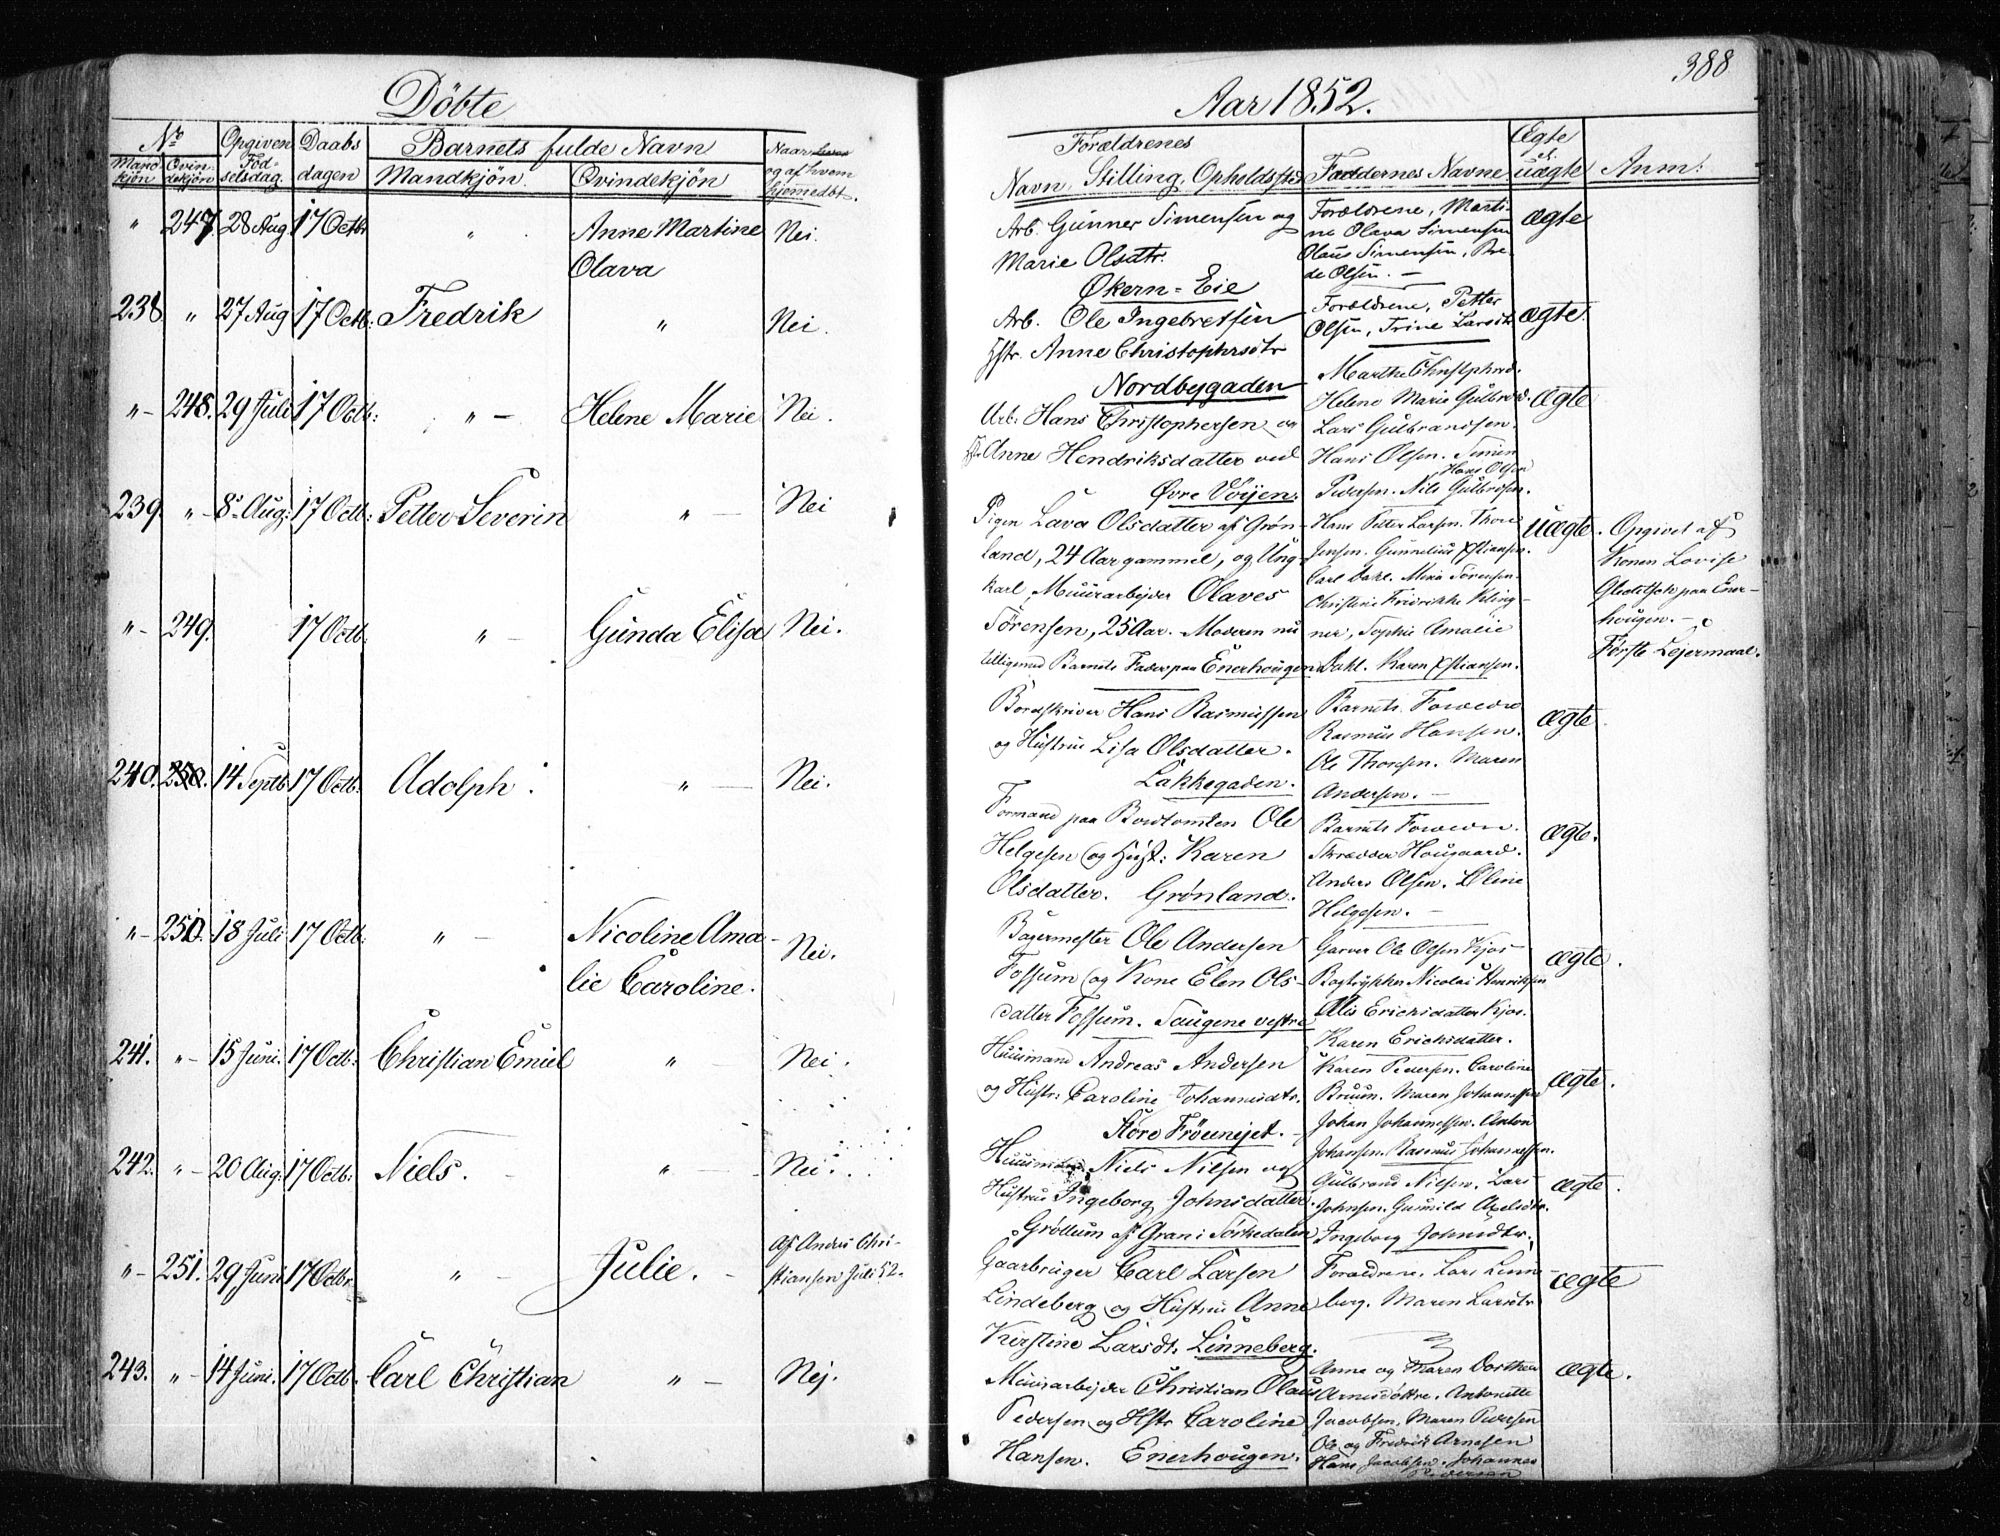 388
Döbte
Aar 1852.
No
Opgiven Födselsdag.
Daabsdagen
Barnets fulde Navn
Mandkjön
Qvindekjön
Mandkjön.
Qvindekjön
Naar og af hvem hjemedbt.
Forældrenes
Navn, Stilling, Opholdssted
Faddernes Navne
Ægte el. uægte
Anm:
" 247. 28 Aug 17 Octb. " Anne Martine Nei.
Olava
Arb. Gunner Simensen og
Marie Olsdtr.
Økern=Eie
Forældrene, Marti-
ne Olava Simensen
Olaus Simensen, Pe-
de Olsen. —
ægte
238. " 27 Aug 17 Octb: Fredrik " Nei.
Arb. Ole Ingebretsen
Hstr. Anne Christophersdtr
Nordbygaden
Forældrene, Petter
Olsen, Trine Larsdt
ægte.
"- 248. 29 Juli 17 Octb: "- Helene Marie Nei.
Arb. Hans Christophersen og
Hstr. Anne Hendriksdatter ved
Øvre Voijen.
Marthe Christophersd.
Helene Marie Gulbrsd.
Lars Gulbrandsen.
Hans Olsen. Simen
Hans Olsen
Pedersen. Nils Gulbrdsen.
ægte
239. "- 8de Aug: 17 Octb: Petter Severin "- Nei
Pigen Lava Olsdatter af Grön-
land, 24 Aar gammel, og Ung-
karl Muurarbejder Olaves
Sörensen, 25 Aar. Moderen nu
tilligemed Barnets Fader paa Enerhougen
Hans Petter Larsen. Thore
Jensen. Gunnelius Xstiansen.
Carl Dahl. Mina Sörensen.
Christine Fridrikke Kling-
ner, Sophie Amalie
Dahl. Karen Xstiansen.
uægte.
Opgivet af
Konen Lovise
Gleditsch paa Ener-
hougen. —
Første Lejermaal.
"- 249. 17 Octb. "- Gunda Elisa Nei.
Bordskriver Hans Rasmussen
og Hustrue Lisa Olsdatter.
Lakkegaden.
Barnets Forældre
Rasmus Hansen.
Ole Thoresen. Maren
Andersen. —
ægte.
240. 250. 14 Septb. 17 Octb. Adolph. "- Nei.
Formand paa Bordtomten Ole
Helgesen og Hust: Karen
Olsdatter. Grönland.
Barnets Forældre.
Skrædder Hougaard.
Anders Olsen. Oline
Helgesen. —
ægte.
"- 250. 18 Juli 17 Octb: "- Nicoline Ama-
lie Caroline. Nei.
Bagermester Ole Andersen
Fossum og Kone Elen Ols-
datter Fossum. Saugene vestre
Garver Ole Olsen Kjos
Bogtrykker Nicolai Henriksen
Alis Ericksdatter Kjos.
Karen Ericksdatter.
ægte.
241. "- 15 Juni. 17 Octb: Christian Emiel "- Nei.
Huusmand Andreas Andersen
og Hustr: Caroline Johannisdtr.
Store Fröunejet. -
Karen Pedersen. Caroline
Bruun. Maren Johannessen
Johan Johannessen. Anton
Johansen. Rasmus Johannessen.
ægte.
242. "- 20 Aug: 17 Octb: Niels. "- Nei.
Huusmand Niels Nilsen og
Hustrue Ingeborg Johnsdatter.
Gröttum af Gran i Sörkedalen
Gulbrand Nilsen. Lars
Johnsen. Gunild Axelsdtr.
Ingeborg Johnsdtr.
ægte.
"- 251. 29 Juni 17 Octbr. "- Julie. - Af Andrs Chri-
stiansen Juli 52.
Gaarbruger Carl Larsen
Lindeberg og Hustrue Anne
Kirstine Larsdt. Linneberg.
Forældrene. Lars Linne-
berg. Maren Larsdtr
ægte
243. "- 14 Juni. 17 Octb. Carl Christian "- Nej.
Muurarbejder Christian Olaus
Pedersen og Hstr Caroline
Hansen. Enerhougen.
Anne og Maren Dorthea
Arnesdöttre. Antonette
Jacobsen. Maren Pedersen
Ole og Fredrik Arnesen
Hans Jacobsen. Johannes
Pedersen
ægte.